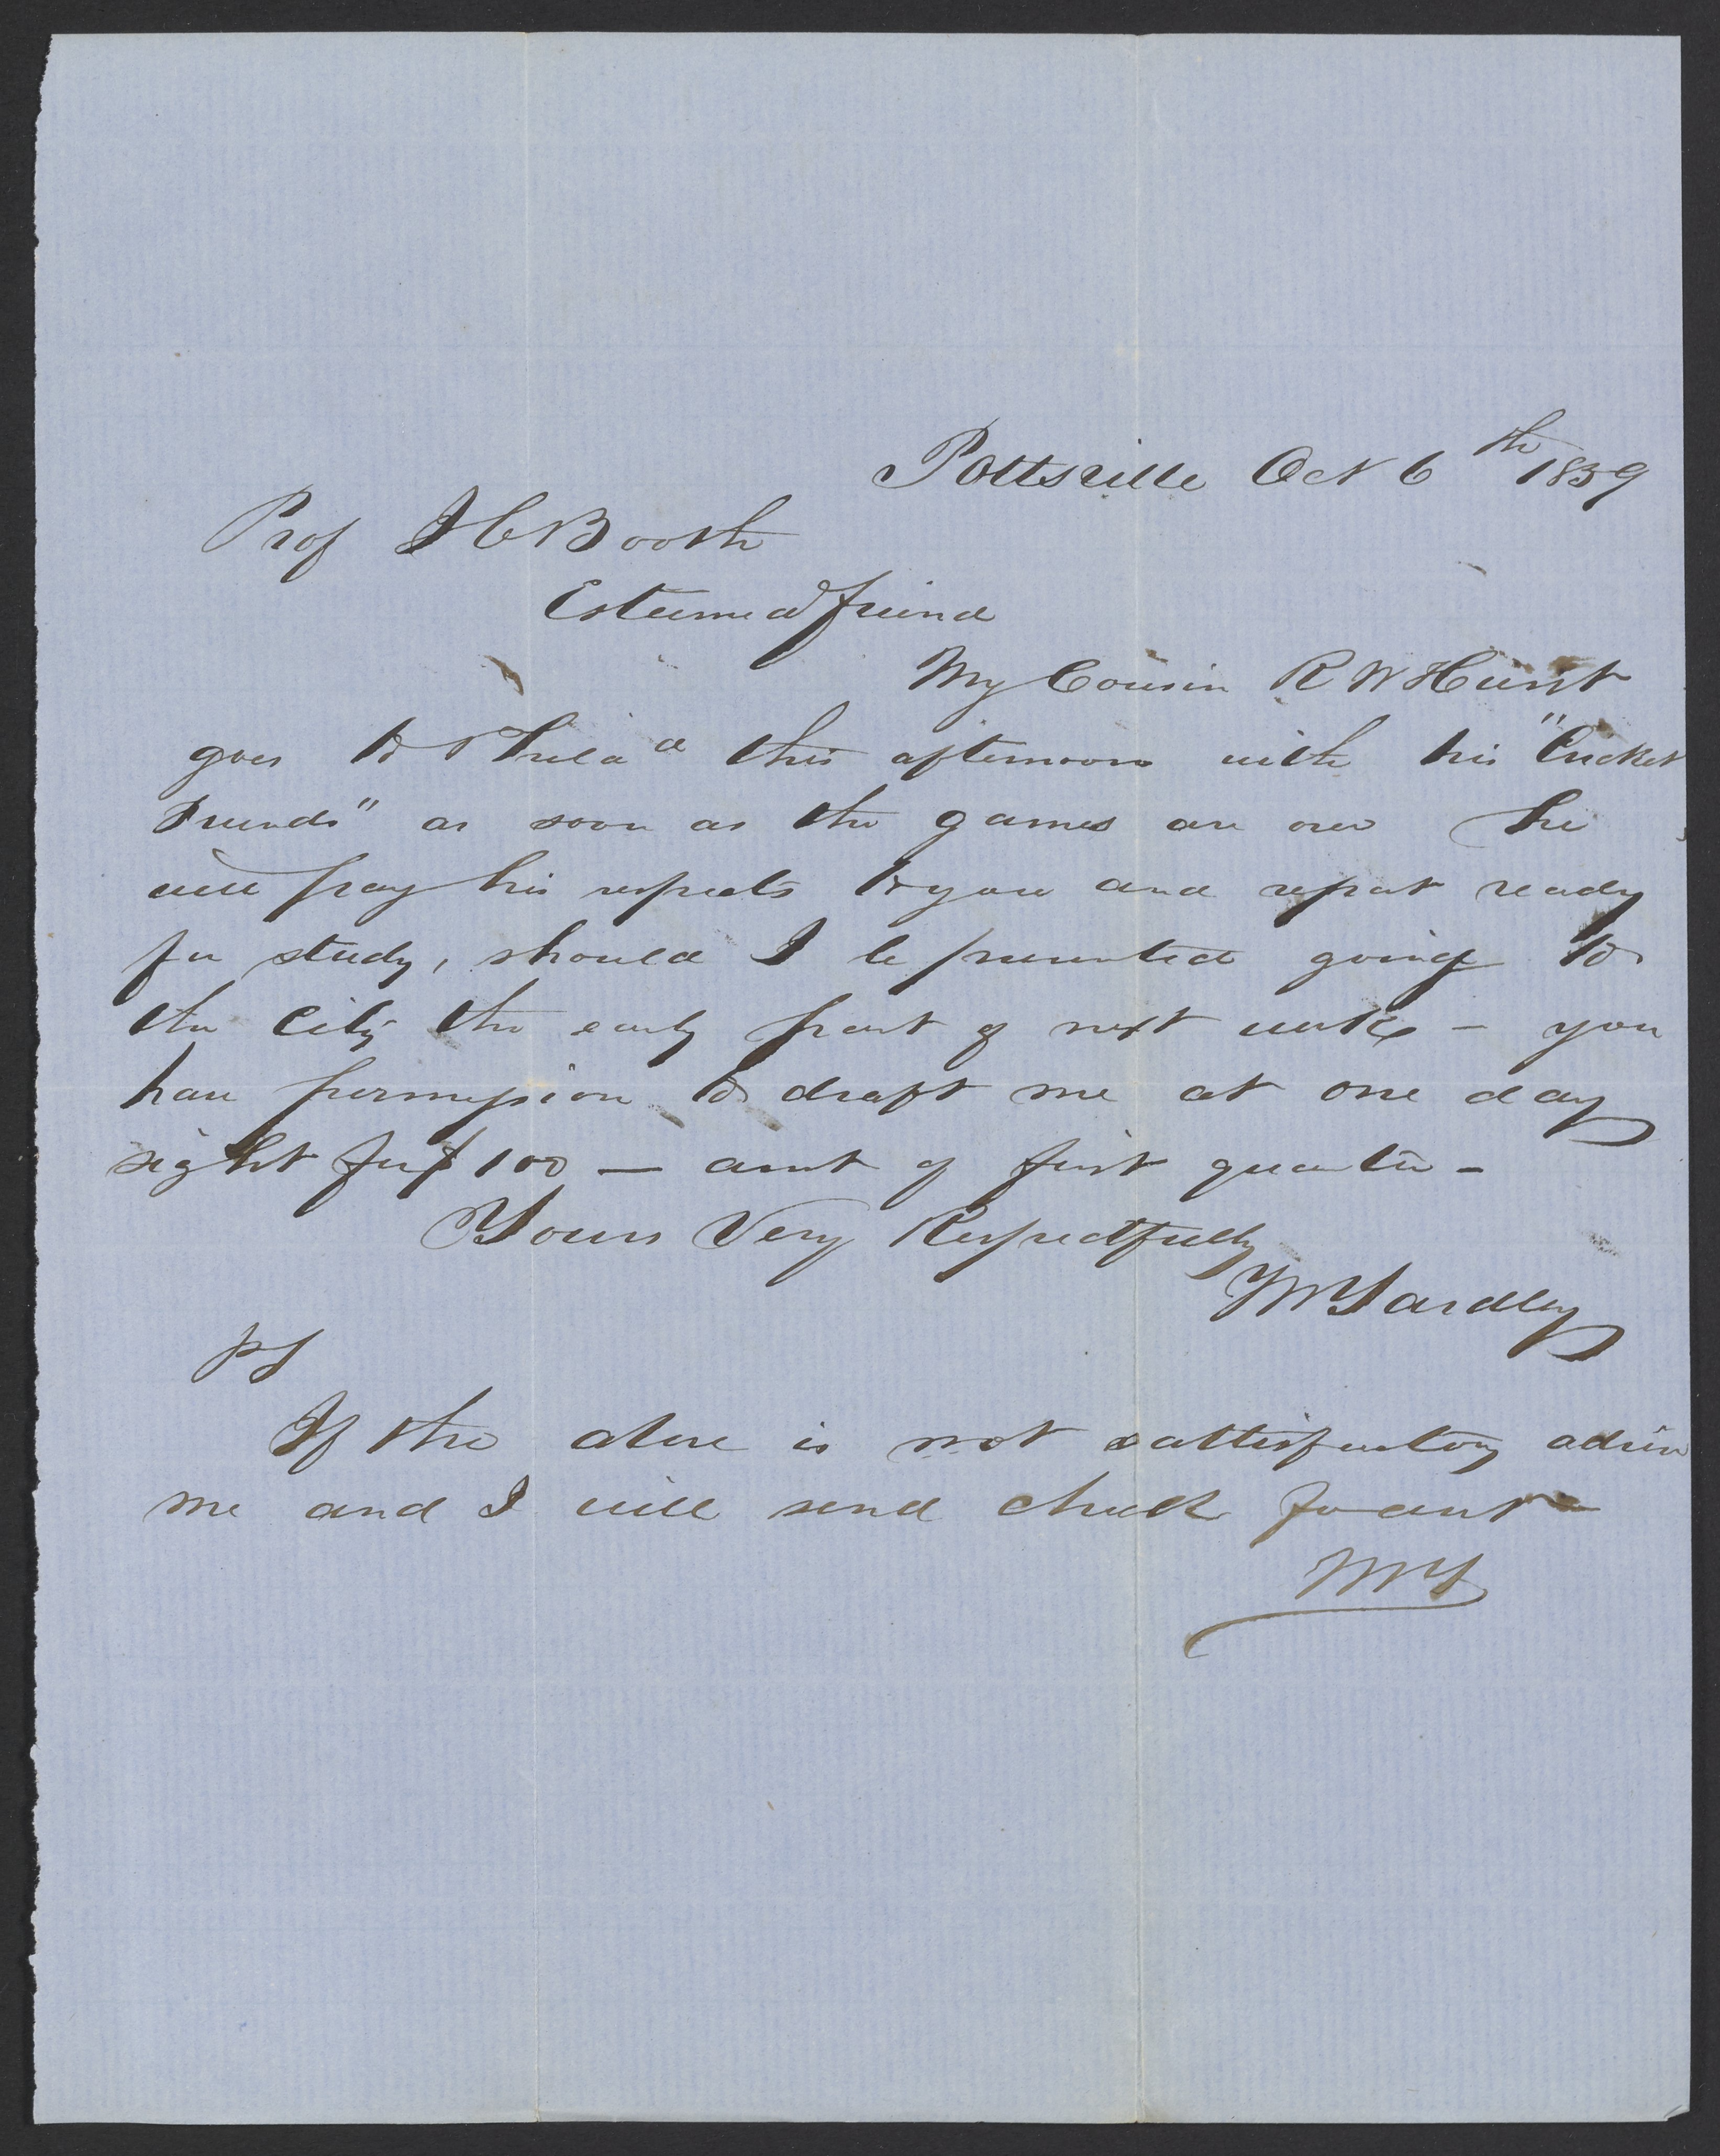 Pottsville Oct 6th 1859
Prof J C Booth
Esteemed friend
My Cousin R W Hunt
goes to Philada this afternoon with his "Cricket
Friends" as soon as the games are over he
will pay his respects to you and report ready
for study, should I be prevented going to
the City the early part of next week - you
have permission to draft me at one day
sight for $100 — amt of first quarter -
Yours Very Respectfully
Yardley
PS
If the above is not sattisfactory advise
me and I will send check for amt -